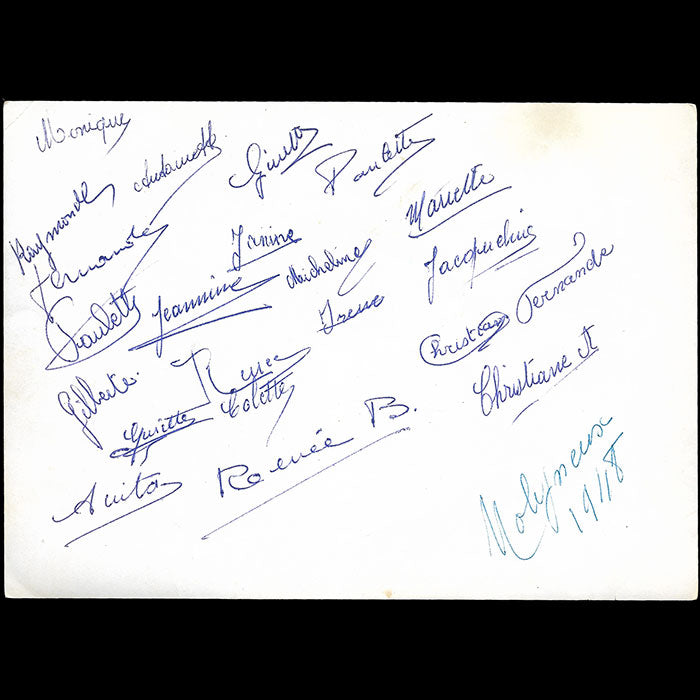 Monique
Raymonde
Ginette
Paulette
Fernande
Irénine
Mariette
Paulette
Jeannine
Micheline
Jacqueline
Gilberte
Renée
Irene
Christian
Fernande
Ginette
Colette
Christiane A
Anita
Renée B.
Molyneux
1948